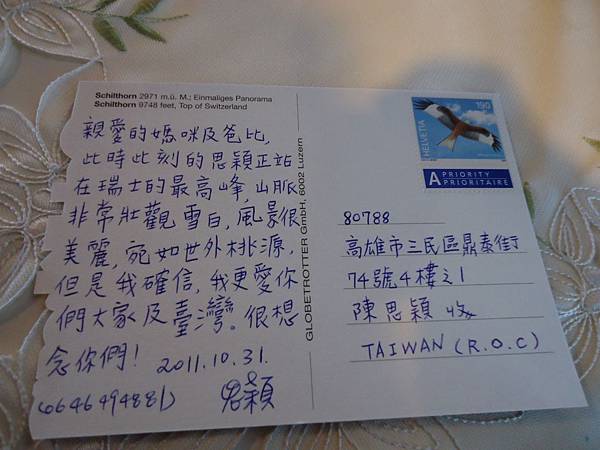 Schilthorn 2971 m.ü. M.; Einmaliges Panorama
Schilthorn 9748 feet, Top of Switzerland
親愛的媽咪及爸比,
此時此刻的思穎正站
在瑞士的最高峰,山脈
非常壯觀雪白,風景很
美麗,宛如世外桃源,
但是我確信,我更愛你
們大家及臺灣。很想
念你們! 2011.10.31.
思穎
(0646494881)
GLOBETROTTER GmbH, 6002 Luzern
190
HELVETIA
A PRIORITY
PRIORITAIRE
80788
高雄市三民區鼎泰街
74號4樓之1
陳思穎 收
TAIWAN (R.O.C)